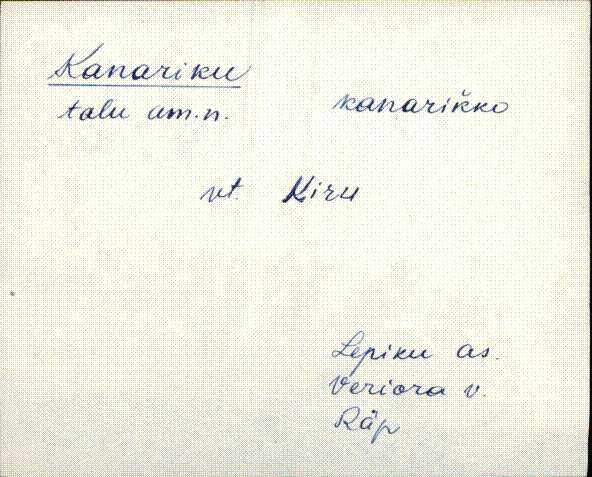 Kanariku
talu am.n. kanariǩko
vt. Kiru
Lepiku as.
Veriora v.
Räp